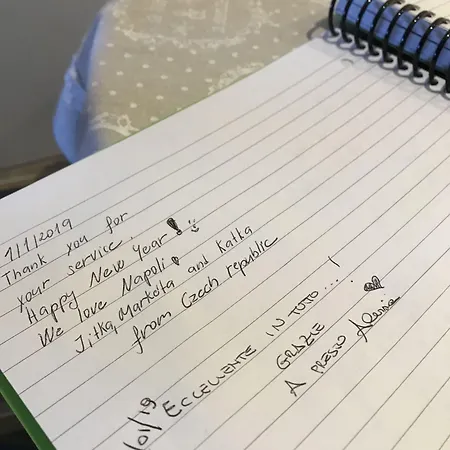 1/1/2019
Thank you for
your service.
Happy New Year!
We love Napoli!
Jitka, Markéta and Katka
from Czech republic
01/19 ECCELLENTE IN TUTTO...!
GRAZIE
A PRESTO